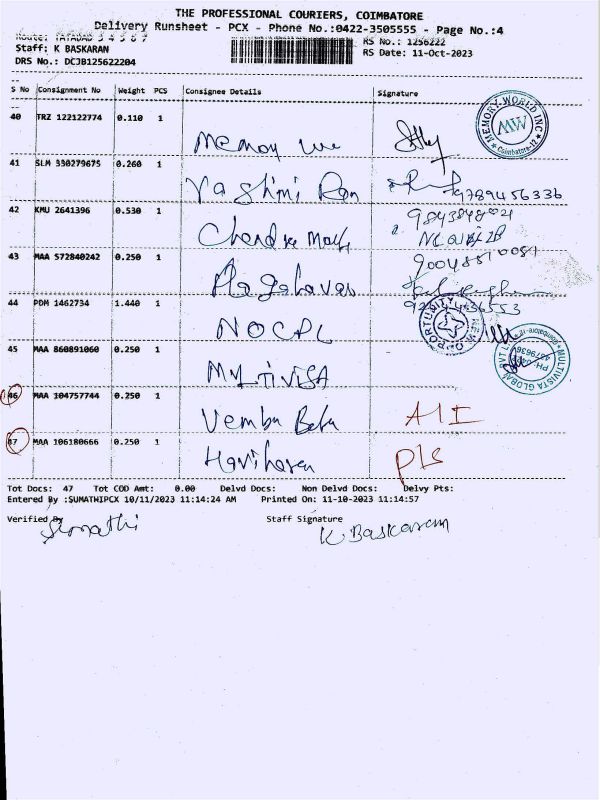 THE PROFESSIONAL COURIERS, COIMBATORE
Delivery Runsheet - PCX - Phone No.:0422-3505555 - Page No.:4
Route: TATABAD 3 4 5 6 7
RS No.: 1256222
Staff: K BASKARAN
RS Date: 11-Oct-2023
DRS No.: DCJB125622204
S No Consignment No Weight PCS Consignee Details Signature
40 TRZ 122122774 0.110 1
Memory
MEMORY-WORLD INC MW Coimbatore-12
41 SLM 330279675 0.260 1
Yashini Ran
9789456336
42 KMU 2641396 0.530 1
Chandra
43 MAA 572840242 0.250 1
44 PDM 1462734 1.440 1
NOCPL
45 MAA 860891060 0.250 1
MULTIVISA
MULTIVISTA GLOBAL PVT
46 MAA 104757744 0.250 1
Vembu Babu
47 MAA 106180666 0.250 1
Hariharan
Pls
Tot Docs: 47 Tot COD Amt: 0.00 Delvd Docs: Non Delvd Docs: Delvy Pts:
Entered By :SUMATHIPCX 10/11/2023 11:14:24 AM Printed On: 11-10-2023 11:14:57
Verified By Staff Signature
Sumathi K Baskaran